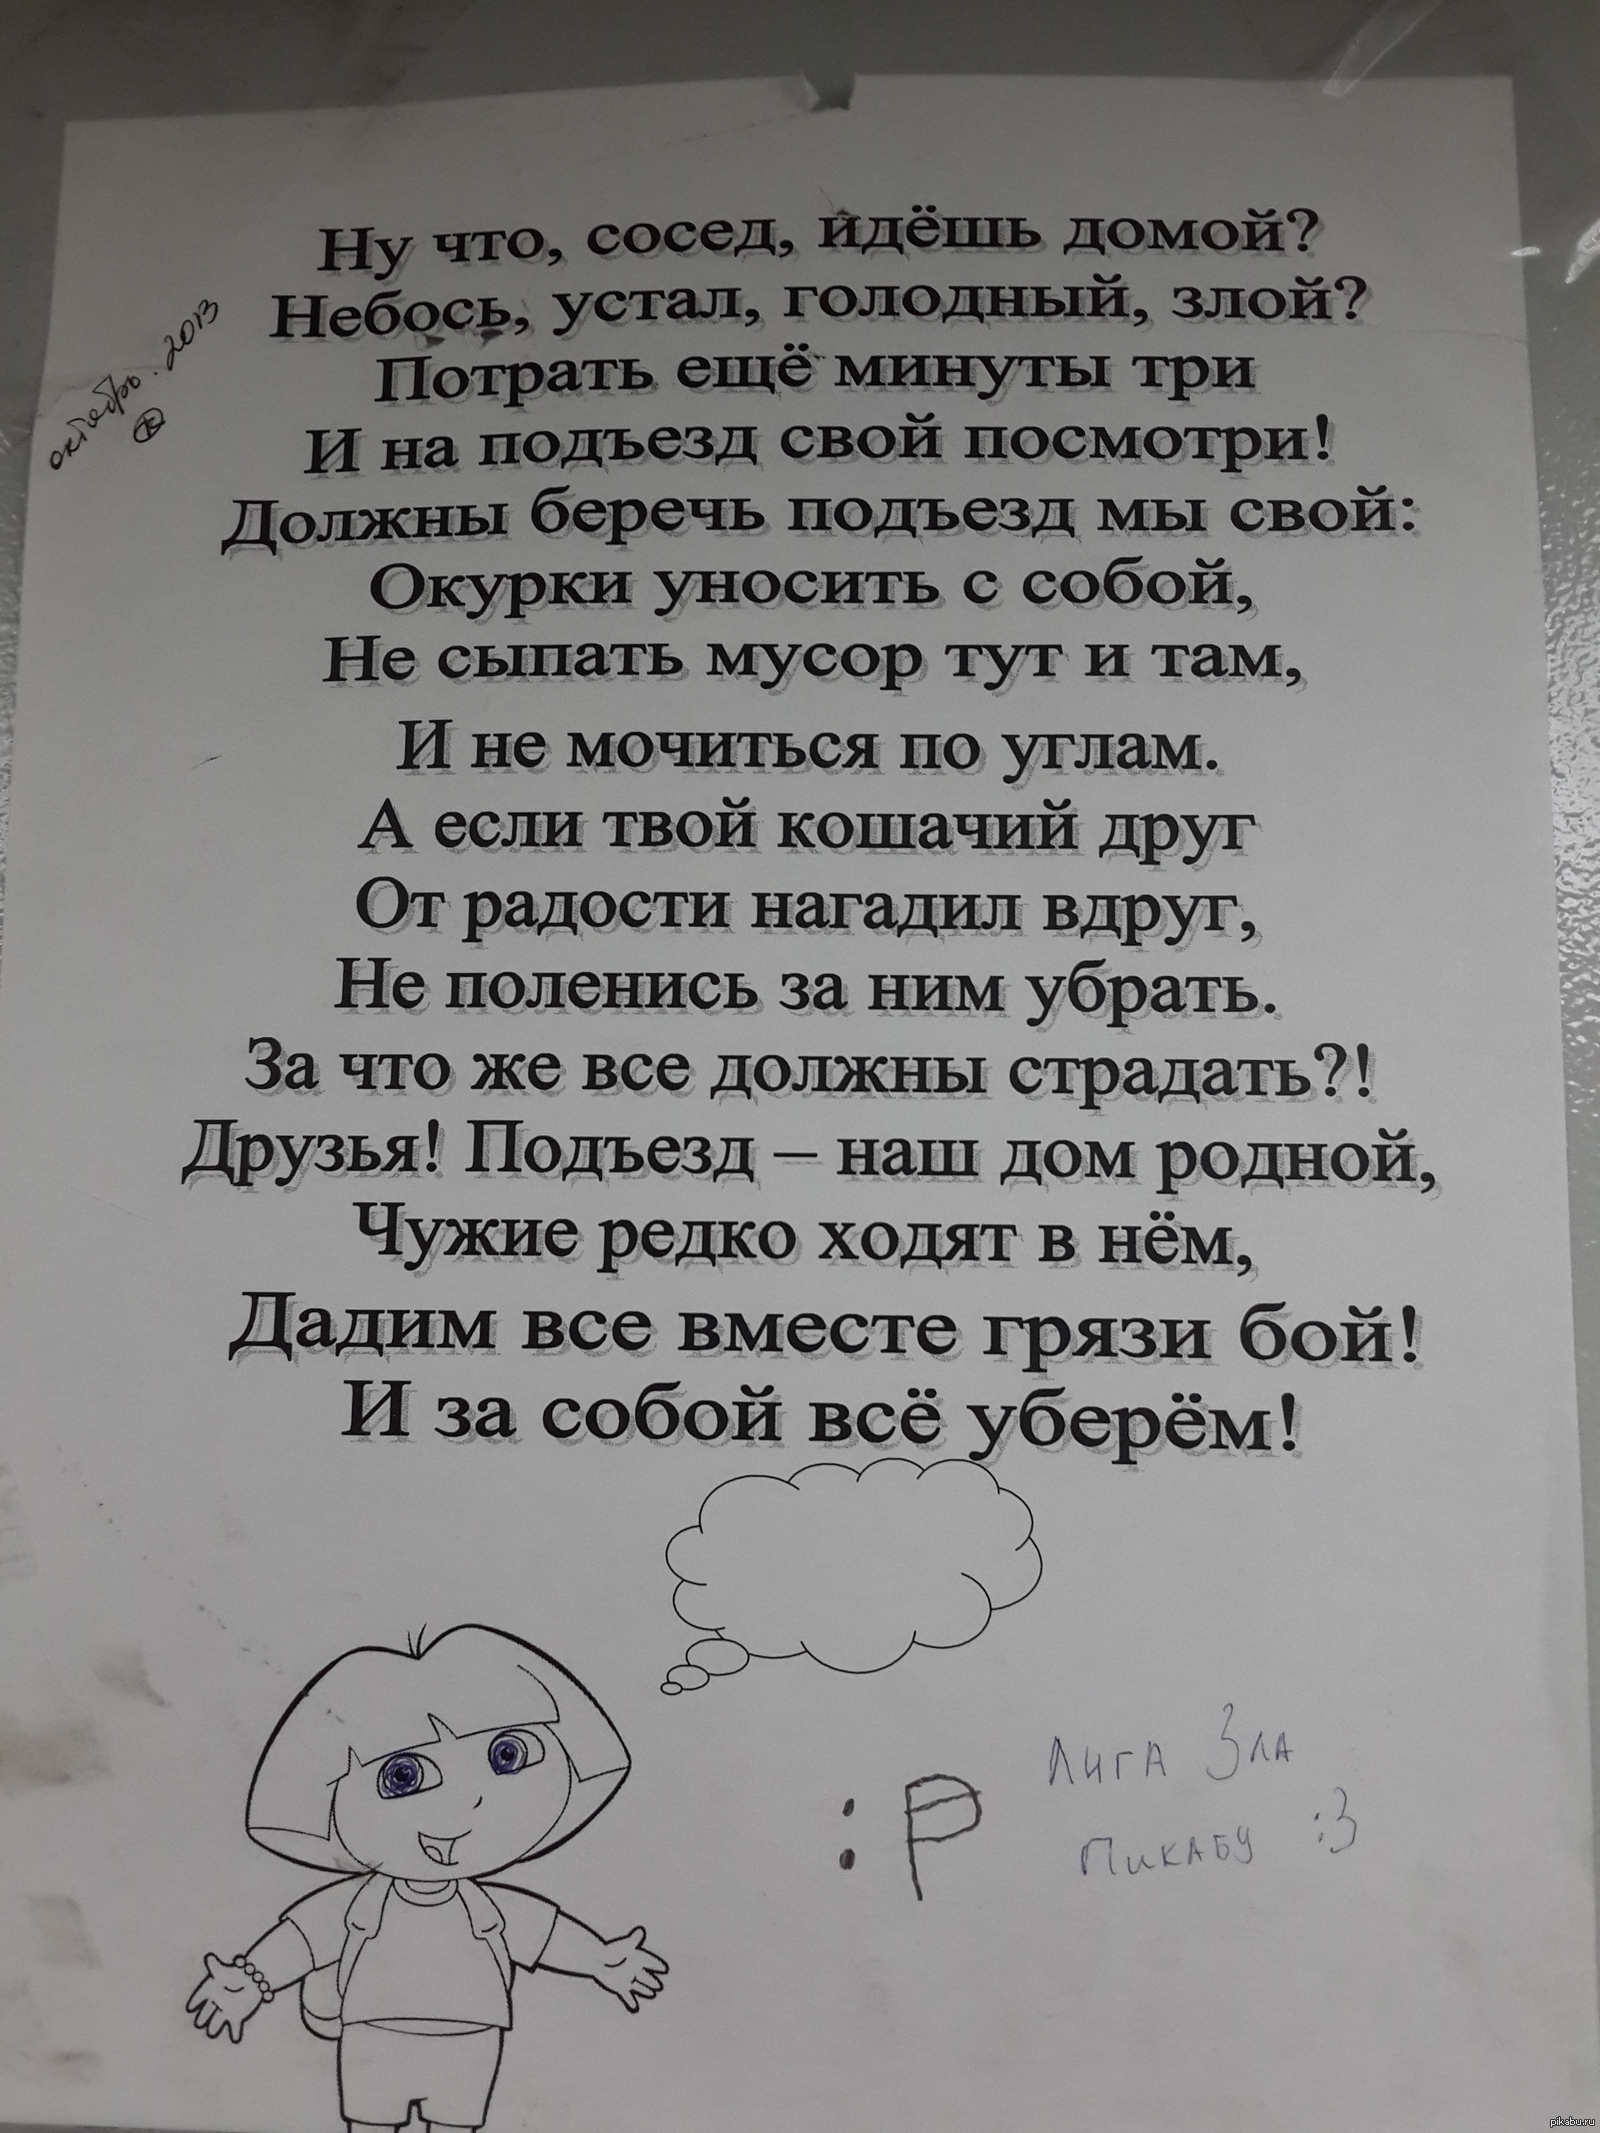 Ну что, сосед, идёшь домой?
Небось, устал, голодный, злой?
Потрать ещё минуты три
И на подъезд свой посмотри!
Должны беречь подъезд мы свой:
Окурки уносить с собой,
Не сыпать мусор тут и там,
И не мочиться по углам.
А если твой кошачий друг
От радости нагадил вдруг,
Не поленись за ним убрать.
За что же все должны страдать?!
Друзья! Подъезд – наш дом родной,
Чужие редко ходят в нём,
Дадим все вместе грязи бой!
И за собой всё уберём!
октябрь. 2013
:P
Лига Зла
Пикабу :3
pikabu.ru